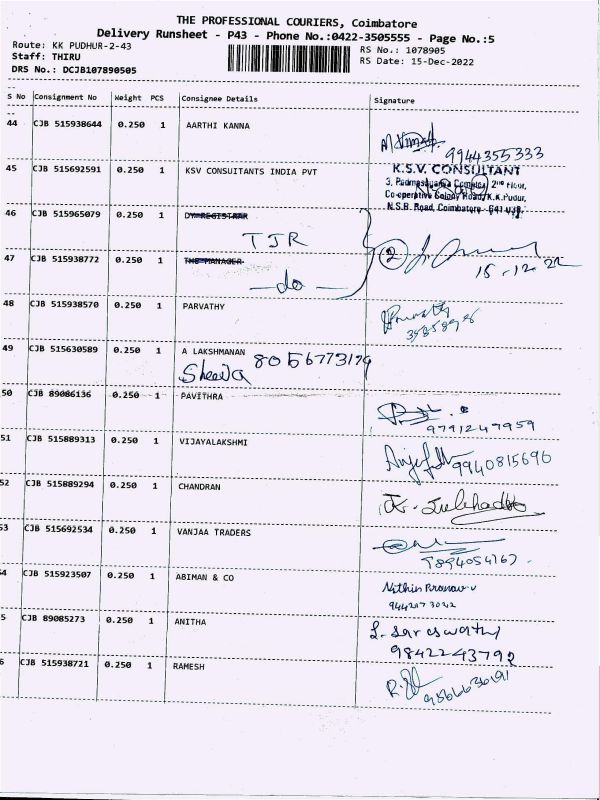 THE PROFESSIONAL COURIERS, Coimbatore
Delivery Runsheet - P43 - Phone No.:0422-3505555 - Page No.:5
Route: KK PUDHUR-2-43
Staff: THIRU
DRS No.: DCJB107890505
RS No.: 1078905
RS Date: 15-Dec-2022
S No Consignment No Weight PCS Consignee Details Signature
44 CJB 515938644 0.250 1 AARTHI KANNA
9944355333
45 CJB 515692591 0.250 1 KSV CONSUITANTS INDIA PVT
K.S.V. CONSULTANT
Co-operative Colony Road, K.K.Pudur,
N.S.R. Road, Coimbatore
46 CJB 515965079 0.250 1 DY REGISTRAR
TJR
47 CJB 515938772 0.250 1 THE MANAGER
-do-
2
15-12-22
48 CJB 515938570 0.250 1 PARVATHY
49 CJB 515630589 0.250 1 A LAKSHMANAN
8056773179
Sheela
50 CJB 89086136 0.250 1 PAVITHRA
9791247959
51 CJB 515889313 0.250 1 VIJAYALAKSHMI
9940815690
52 CJB 515889294 0.250 1 CHANDRAN
53 CJB 515692534 0.250 1 VANJAA TRADERS
54 CJB 515923507 0.250 1 ABIMAN & CO
Nithin Pranav
5 CJB 89085273 0.250 1 ANITHA
L. Sareswathy
9842243792
6 CJB 515938721 0.250 1 RAMESH